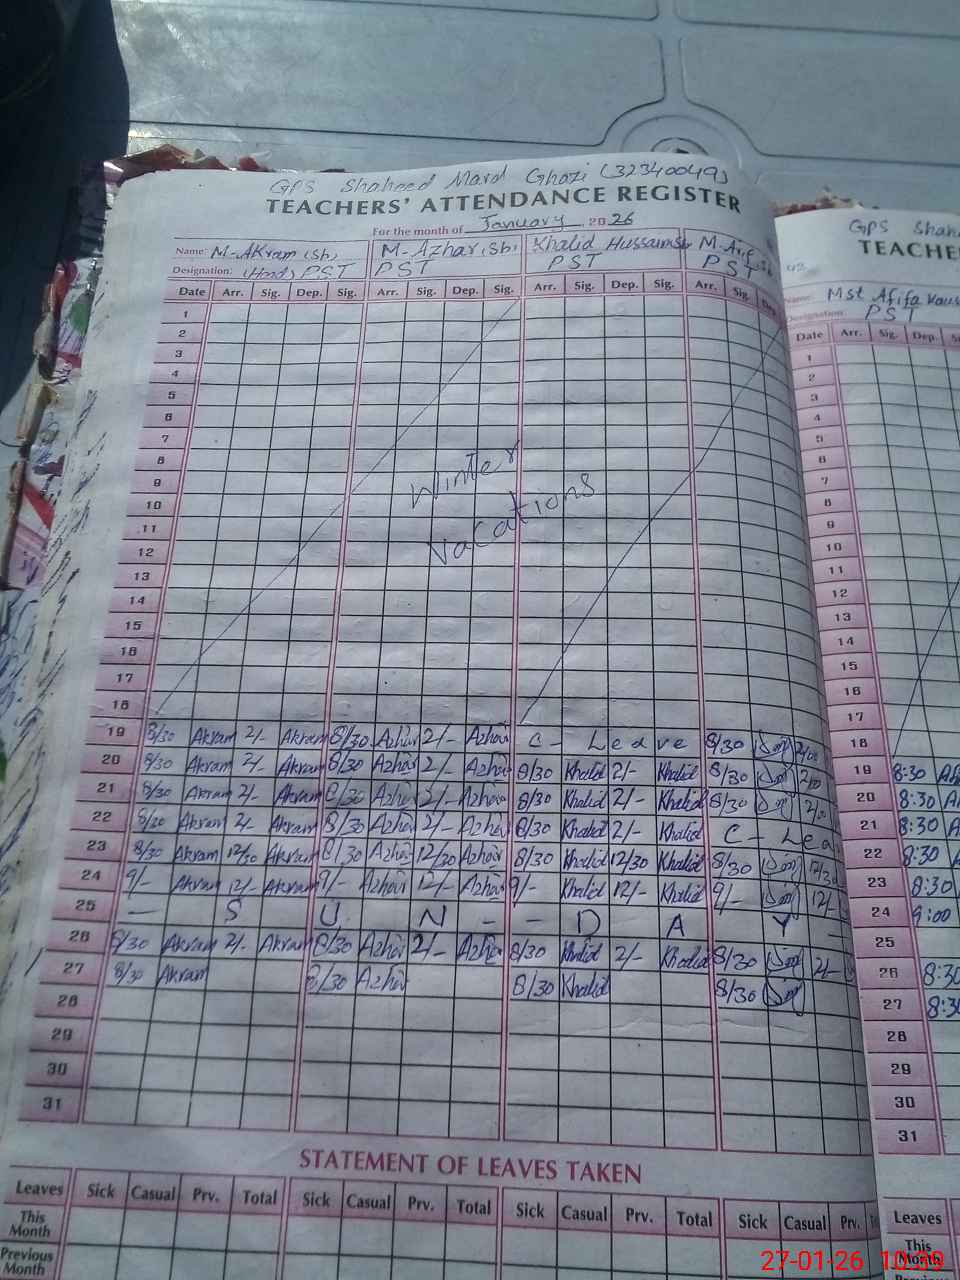 GPS Shaheed Mard Ghazi (32340049)
TEACHERS' ATTENDANCE REGISTER
For the month of January 2026
Name: M. Akram (Sh) M. Azhar (Sh) Khalid Hussain M. Arif
Designation: PST PST PST PST
Date Arr. Sig. Dep. Sig. Arr. Sig. Dep. Sig. Arr. Sig. Dep. Sig. Arr. Sig. Dep.
1
2
3
4
5
6
7
8
9
10
11
12
13
14
15
16
17
18
Winter
Vacations
19 8/30 Akram 2/- Akram 8/30 Azhar 2/- Azhar C - Leave 8/30 2/00
20 8/30 Akram 2/- Akram 8/30 Azhar 2/- Azhar 8/30 Khalid 2/- Khalid 8/30 2/00
21 8/30 Akram 2/- Akram 8/30 Azhar 2/- Azhar 8/30 Khalid 2/- Khalid 8/30 2/00
22 8/30 Akram 2/- Akram 8/30 Azhar 2/- Azhar 8/30 Khalid 2/- Khalid C - Lea
23 8/30 Akram 12/30 Akram 8/30 Azhar 12/30 Azhar 8/30 Khalid 12/30 Khalid 8/30 12/30
24 9/- Akram 12/- Akram 9/- Azhar 12/- Azhar 9/- Khalid 12/- Khalid 9/- 12/-
25 - S U N - - D A Y -
26 8/30 Akram 2/- Akram 8/30 Azhar 2/- Azhar 8/30 Khalid 2/- Khalid 8/30 2/-
27 8/30 Akram 8/30 Azhar 8/30 Khalid 8/30
28
29
30
31
STATEMENT OF LEAVES TAKEN
Leaves Sick Casual Prv. Total Sick Casual Prv. Total Sick Casual Prv. Total Sick Casual Prv.
This Month
Previous Month
GPS Shah
TEACHE
Name: Mst Afifa Kaus
Designation: PST
Date Arr. Sig. Dep.
1
2
3
4
5
6
7
8
9
10
11
12
13
14
15
16
17
18
19 8:30
20 8:30
21 8:30
22 8:30
23 8:30
24 9:00
25
26 8:30
27 8:30
28
29
30
31
Leaves
This Month
27-01-26 10:39